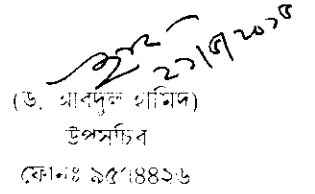 ২৭/৫/২০১৫
(ড. আবদুল হামিদ)
উপসচিব
ফোনঃ ৯৫৭৪৪২৬